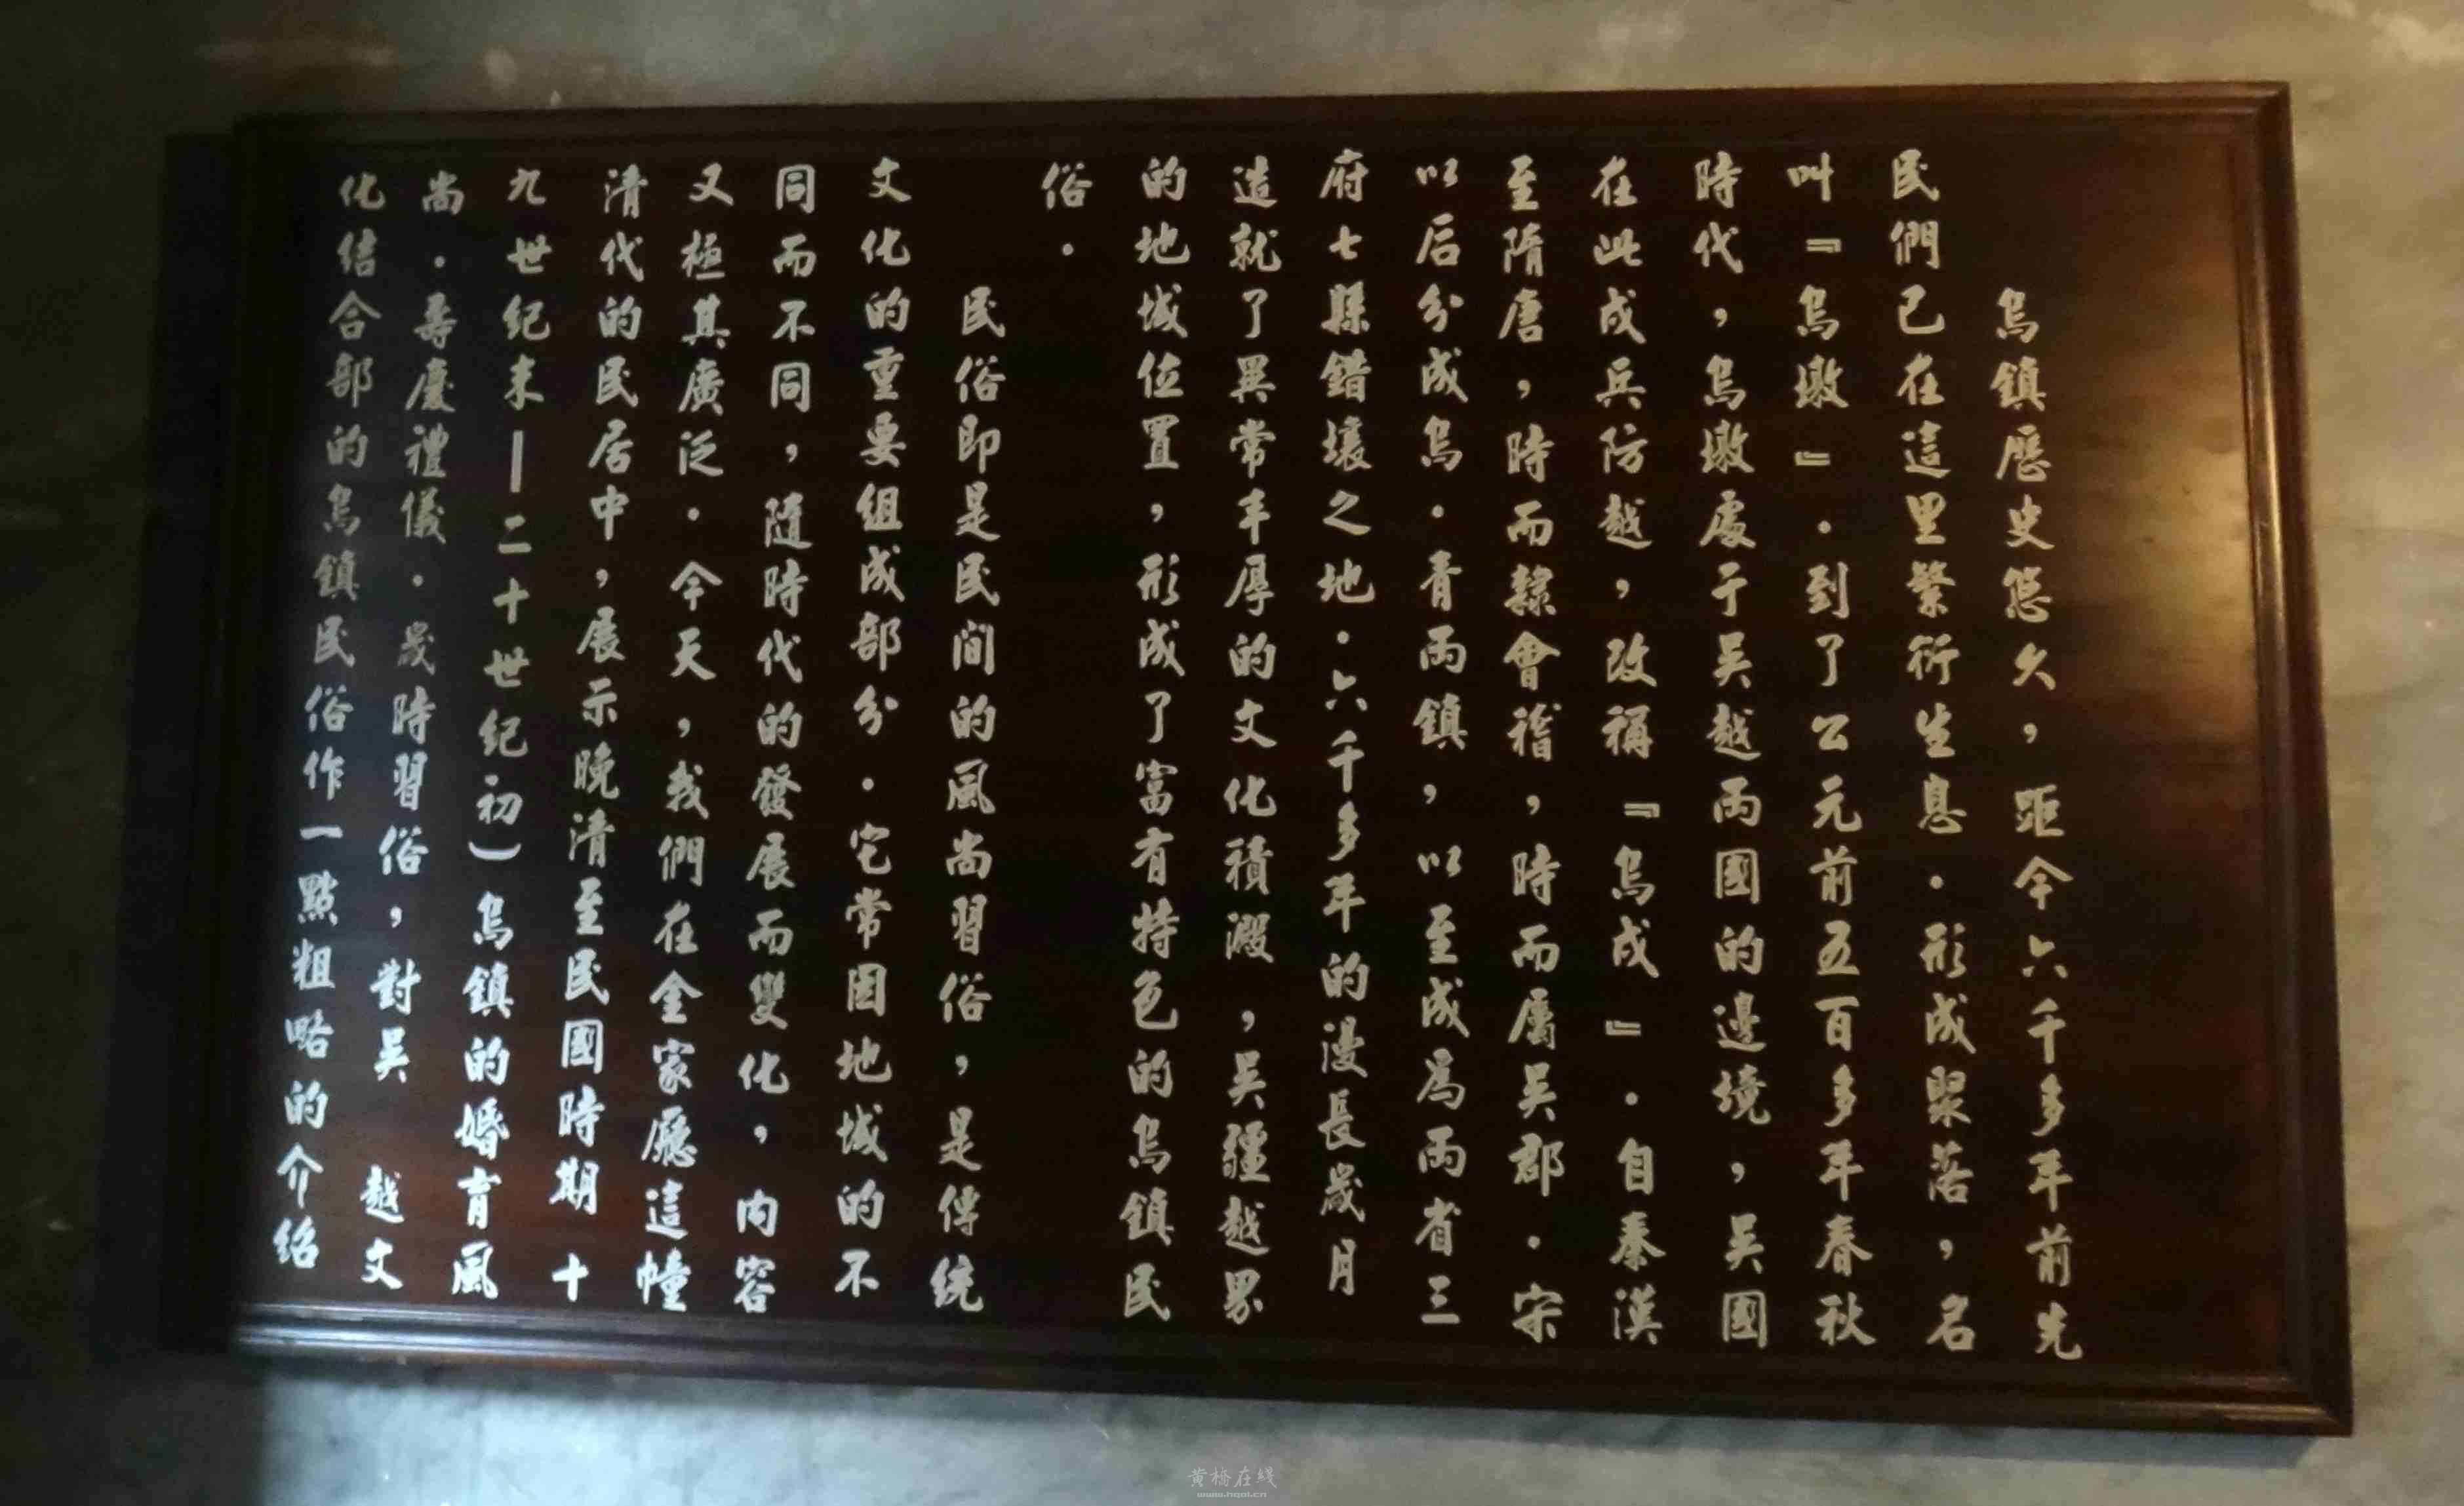 烏鎮歷史悠久，距今六千多年前先
民們已在這里繁衍生息．形成聚落，名
叫『烏墩』．到了公元前五百多年春秋
時代，烏墩處于吴越兩國的邊境，吴國
在此戍兵防越，改稱『烏戍』．自秦漢
至隋唐，時而隸會稽，時而屬吴郡．宋
以后分成烏．青兩鎮，以至成為兩省三
府七縣錯壤之地．六千多年的漫長歲月
造就了異常丰厚的文化積澱，吴疆越界
的地域位置，形成了富有特色的烏鎮民
俗．
民俗即是民間的風尚習俗，是傳統
文化的重要組成部分．它常因地域的不
同而不同，隨時代的發展而變化，内容
又極其廣泛．今天，我們在金家廳這幢
清代的民居中，展示晚清至民國時期十
九世紀末—二十世紀初）烏鎮的婚育風
尚．壽慶禮儀．歲時習俗，對吴越文
化結合部的烏鎮民俗作一點粗略的介紹
黄桥在线
www.hqot.cn